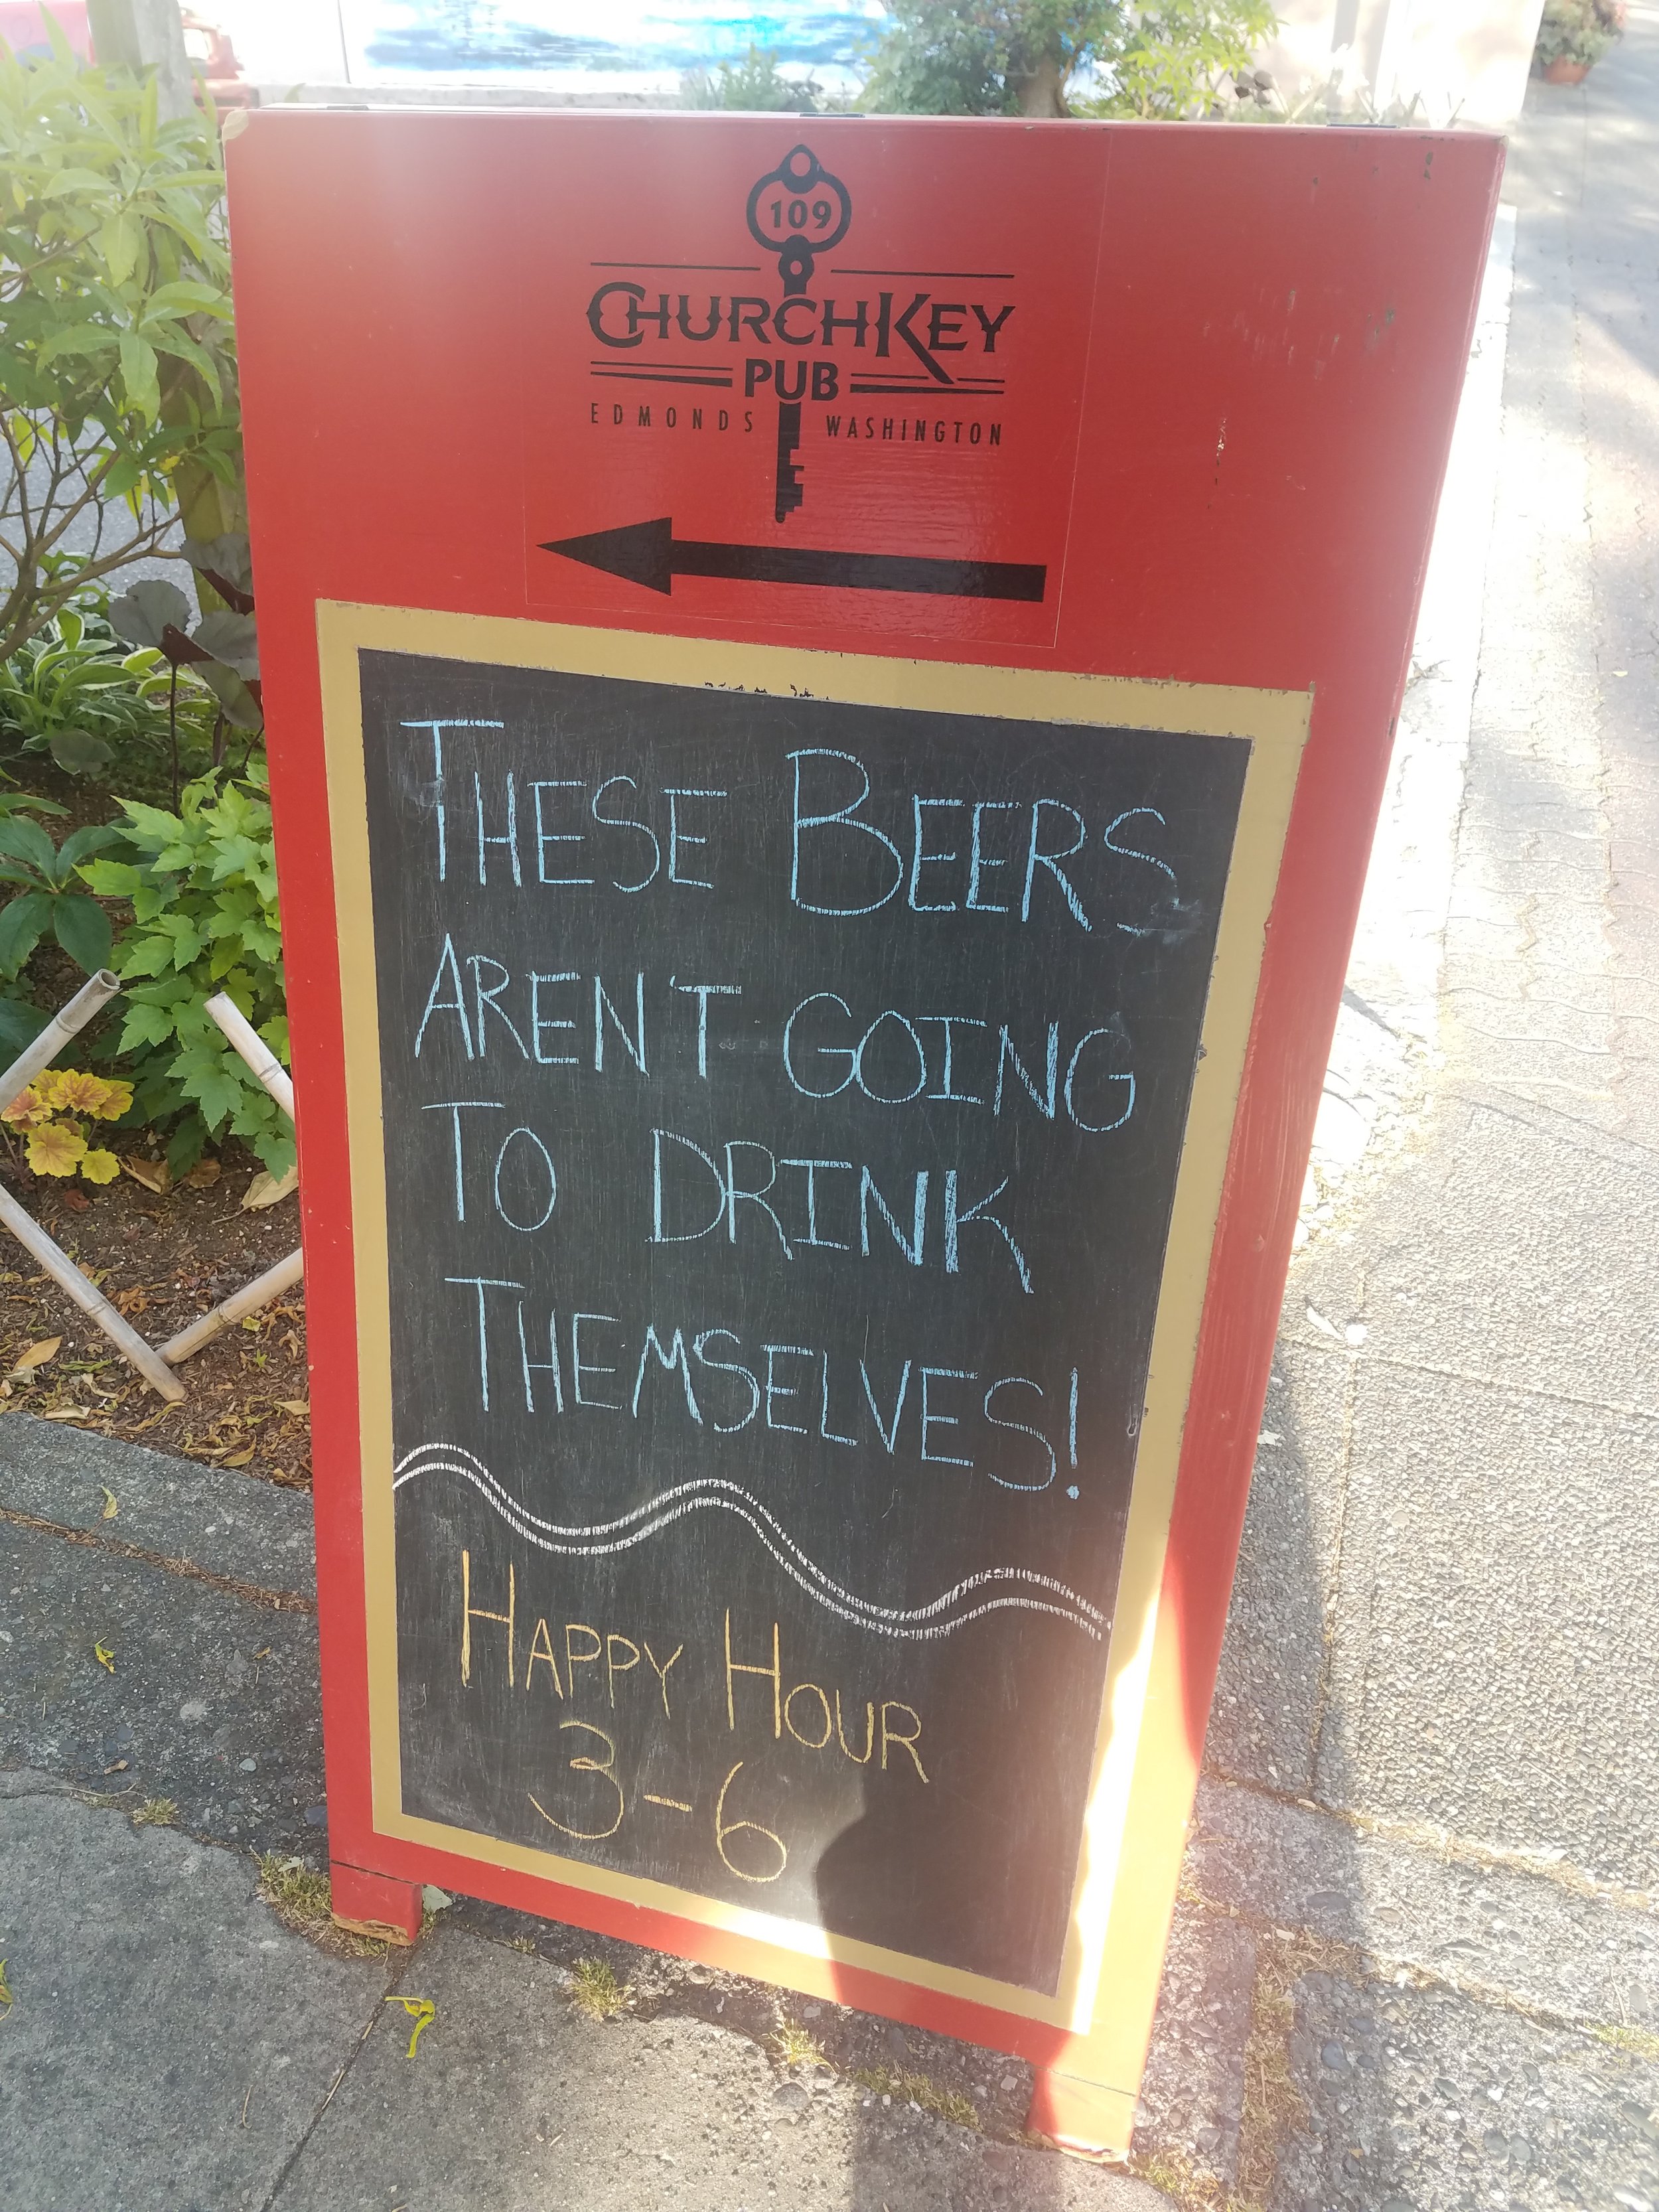 109
CHURCHKEY
PUB
EDMONDS WASHINGTON
THESE BEERS
AREN'T GOING
TO DRINK
THEMSELVES!
HAPPY HOUR
3-6